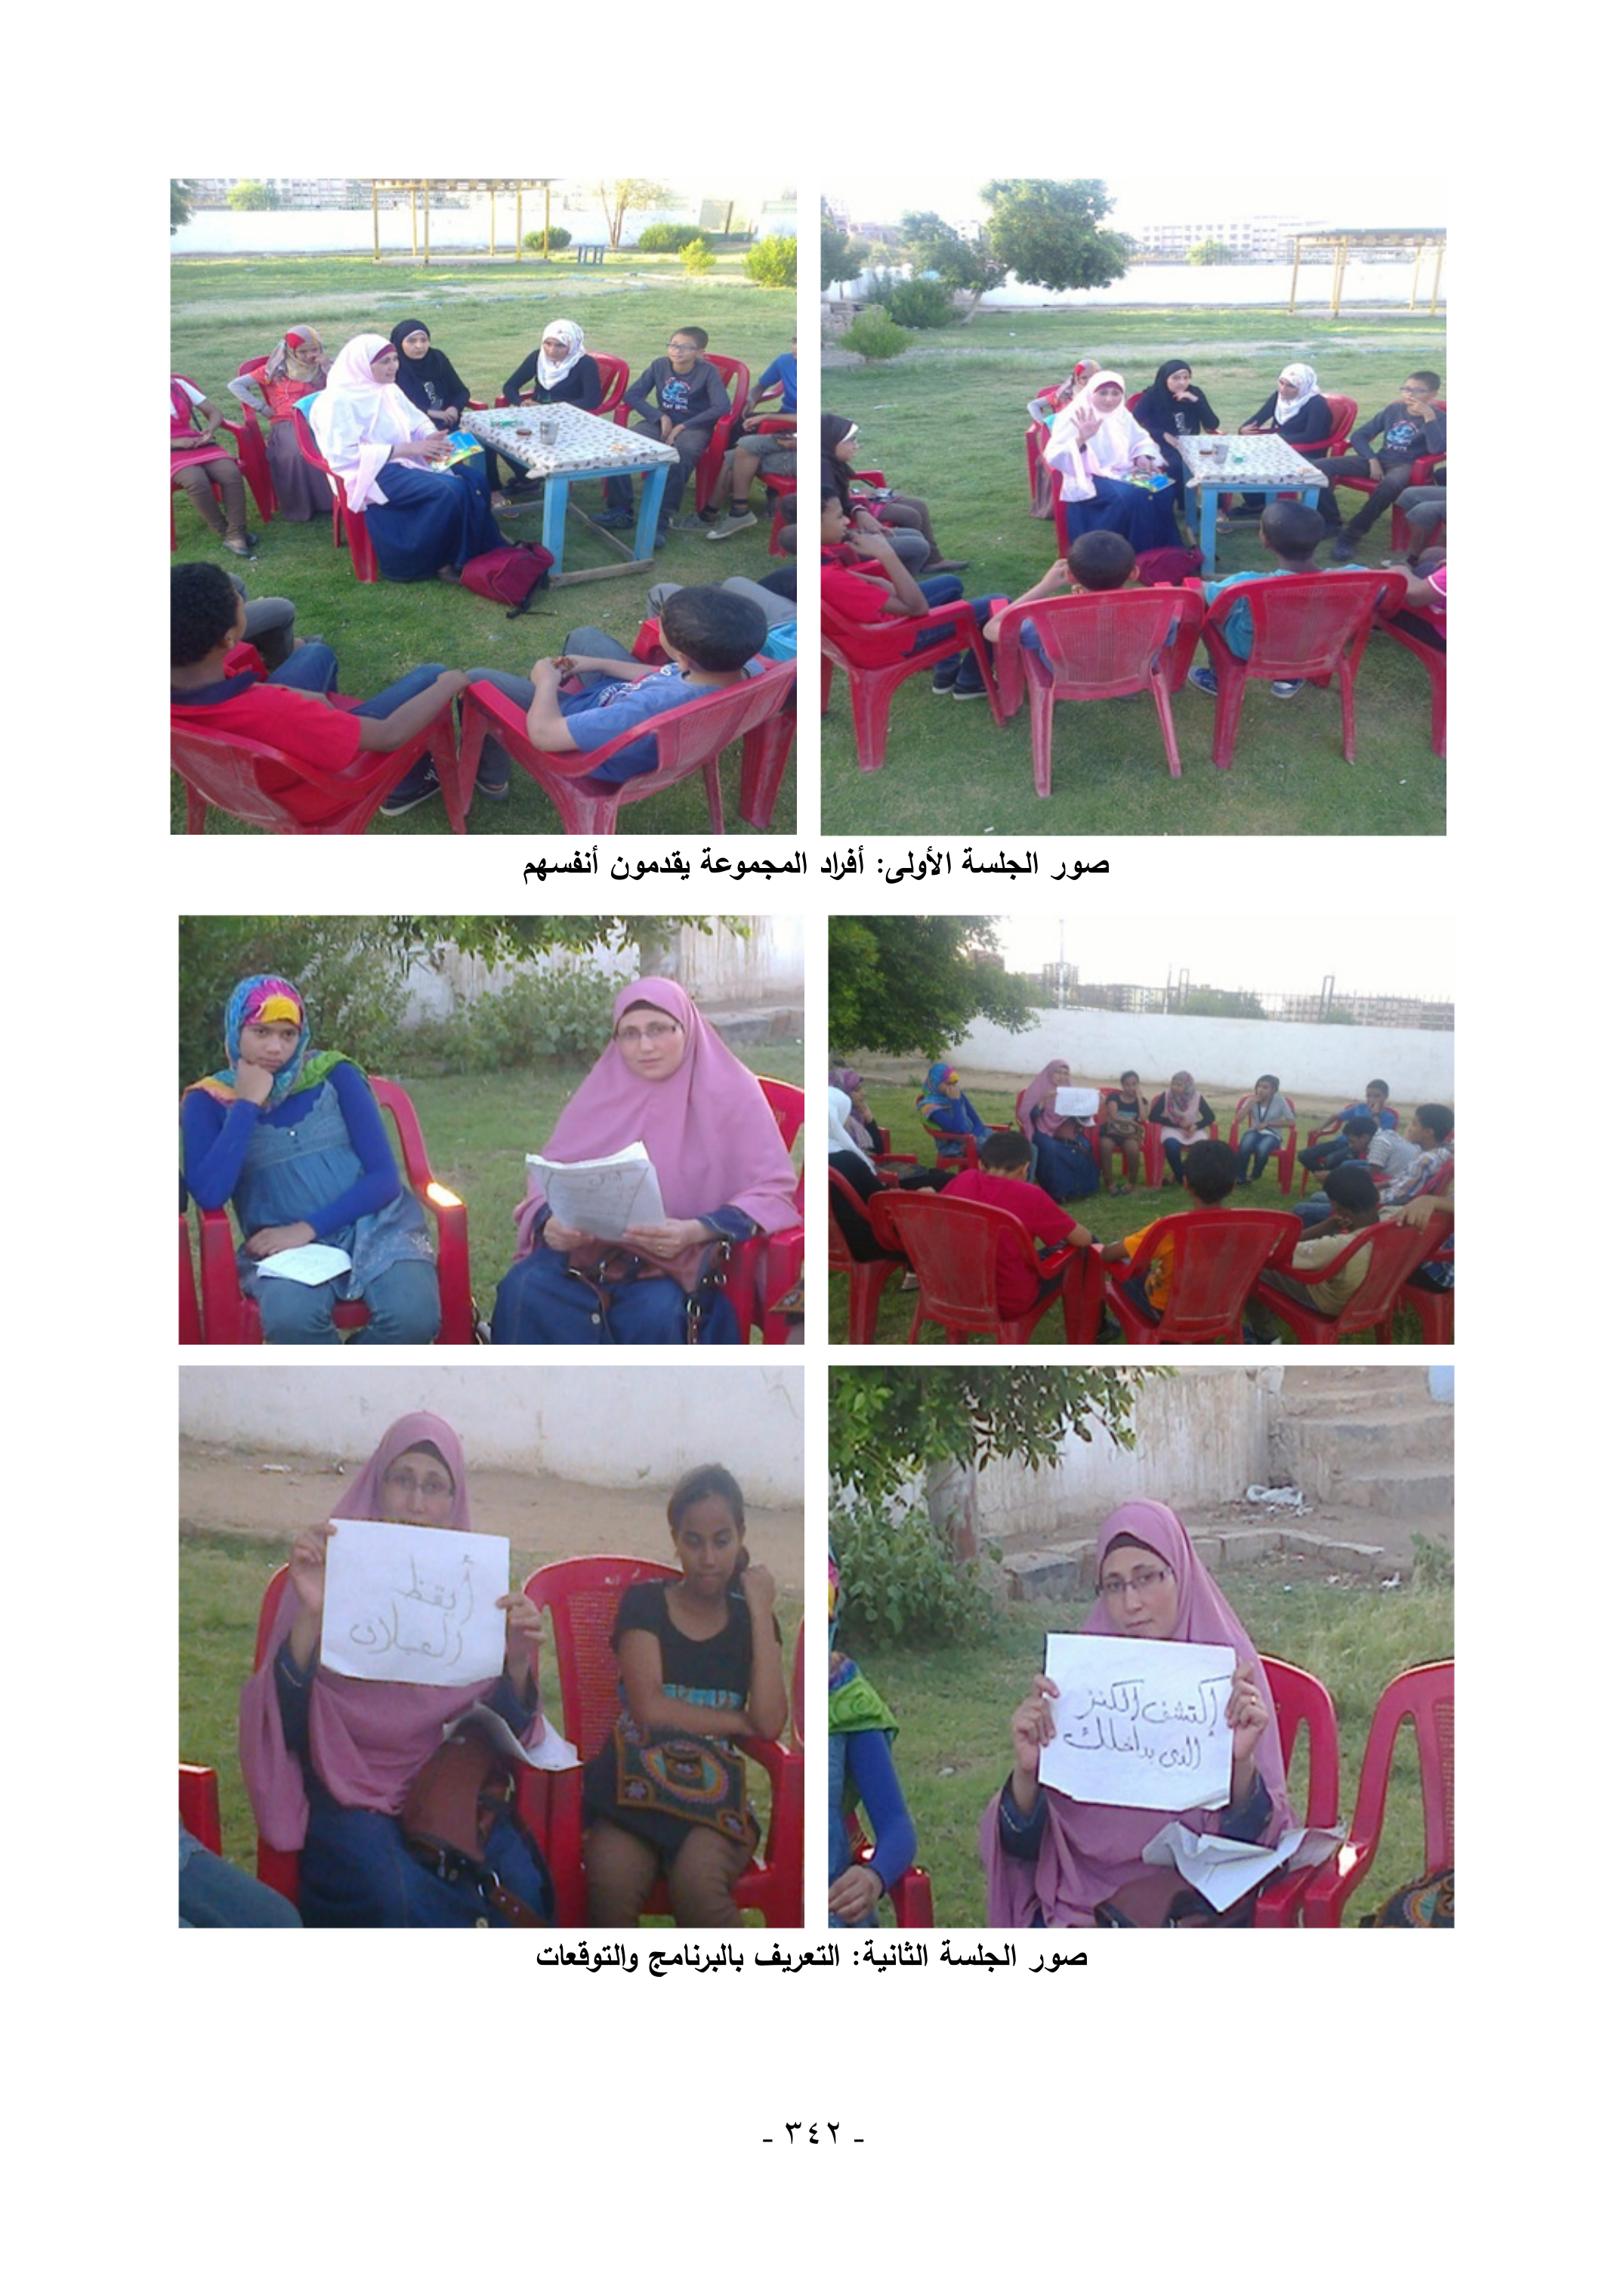 صور الجلسة الأولى: أفراد المجموعة يقدمون أنفسهم
أيقظ
العملاق
إكتشف الكنز
الذى بداخلك
صور الجلسة الثانية: التعريف بالبرنامج والتوقعات
- ٣٤٢ -